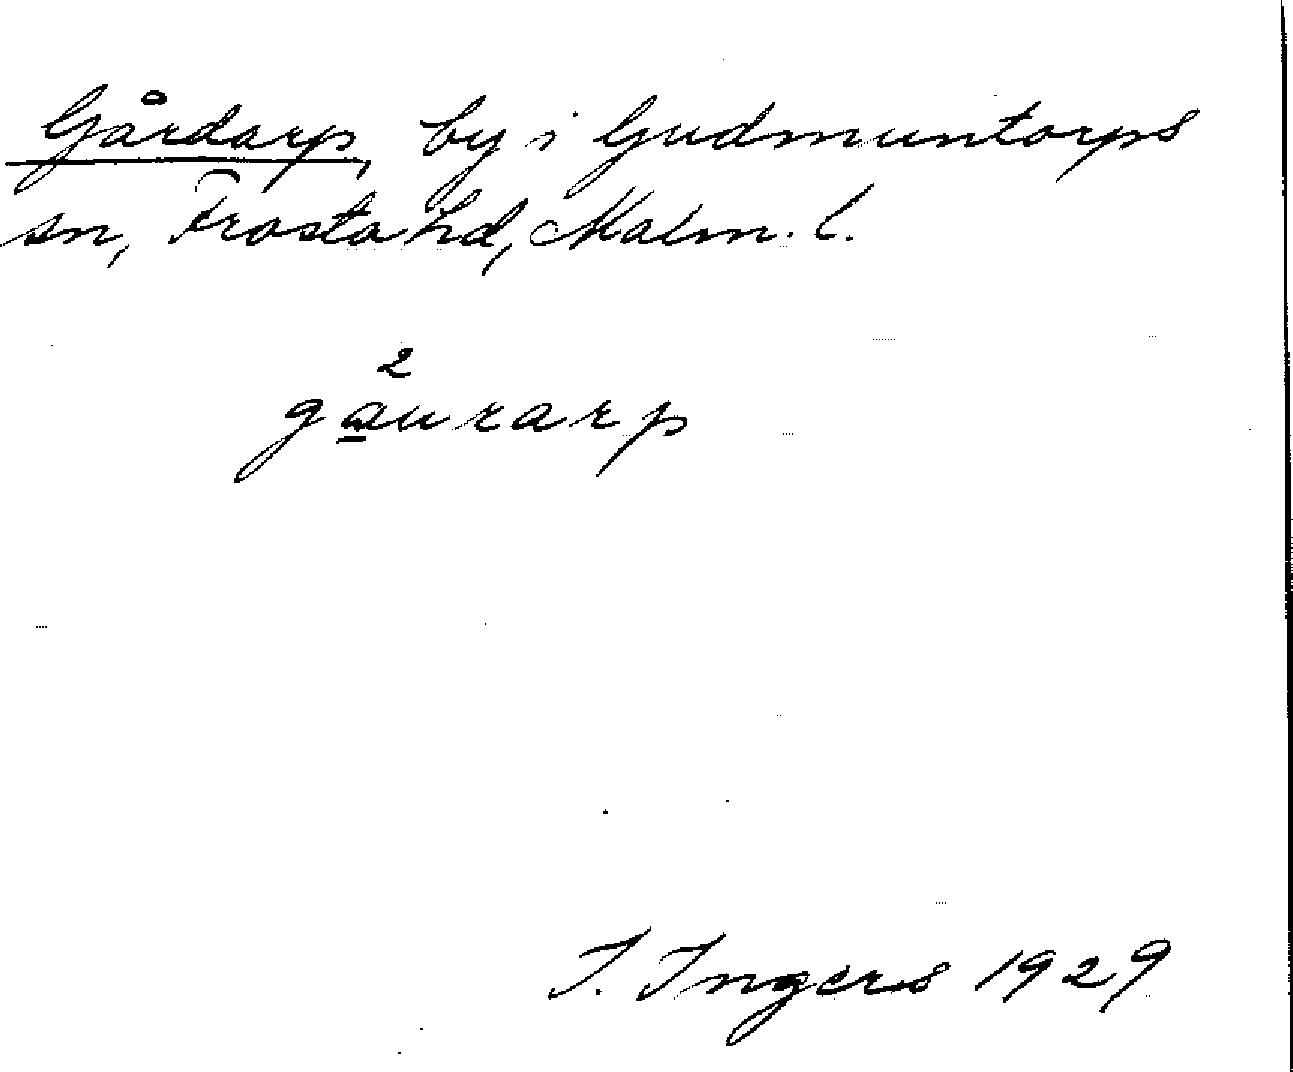 Gårdarp, by i Gudmuntorps
sn, Frosta hd, Malm. l.
2
ga̱urarp
I. Ingers 1929